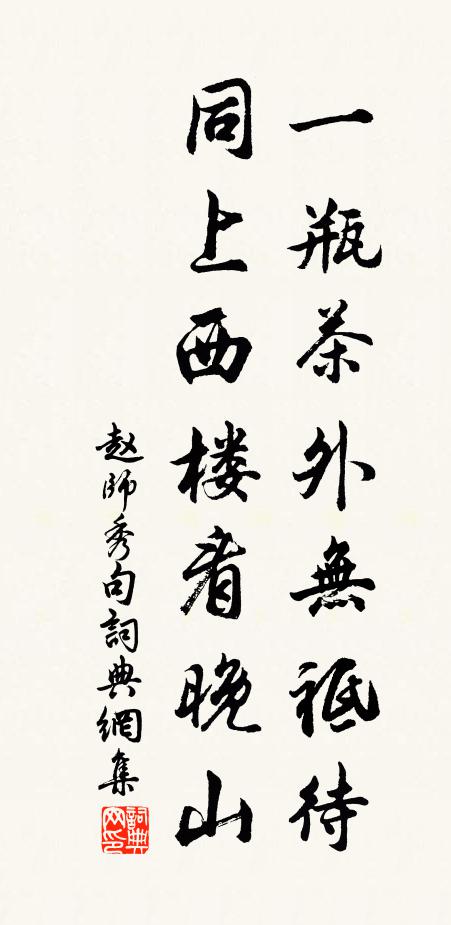 一瓶茶外無祗待
同上西楼看晚山
赵師秀句詞典網集
詞典网印